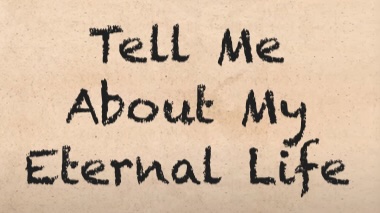 Tell Me
About My
Eternal Life